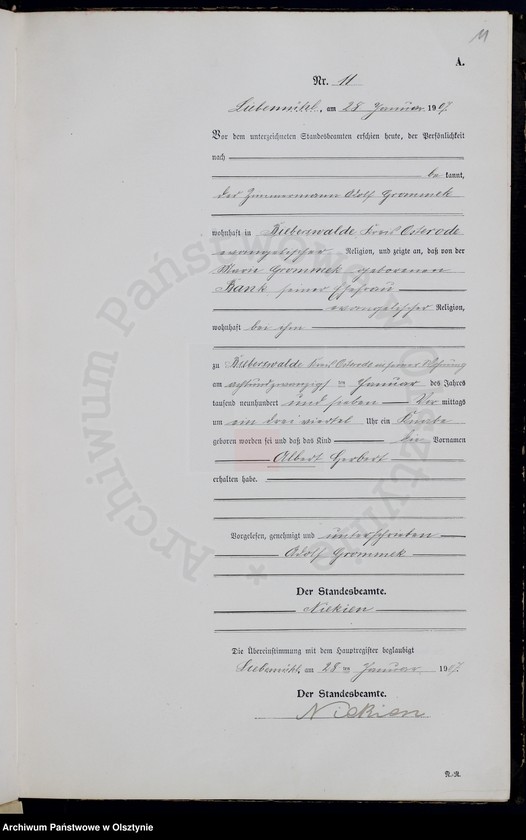 11
A.
Nr. 11
Liebemühl, am 28 Januar 1907.
Vor dem unterzeichneten Standesbeamten erschien heute, der Persönlichkeit
nach
be kannt,
der Zimmermann Adolf Grommek
wohnhaft in Bieberswalde Kreis Osterode
evangelischer Religion, und zeigte an, daß von der
Marie Grommek geborenen
Bank seiner Ehefrau
evangelischer Religion,
wohnhaft bei ihm
zu Bieberswalde Kreis Osterode in seiner Wohnung
am achtundzwanzigsten Januar des Jahres
tausend neunhundert und sieben Vor mittags
um ein drei viertel Uhr ein Knabe
geboren worden sei und daß das Kind die Vornamen
Albert Herbert
erhalten habe.
Vorgelesen, genehmigt und unterschrieben
Adolf Grommek
Der Standesbeamte.
Niekien
Die Übereinstimmung mit dem Hauptregister beglaubigt
Liebemühl, am 28 ten Januar 1907.
Der Standesbeamte.
Niekien
N.-R.
Archiwum Państwowe w Olsztynie
Archiwum Państwowe w Olsztynie *